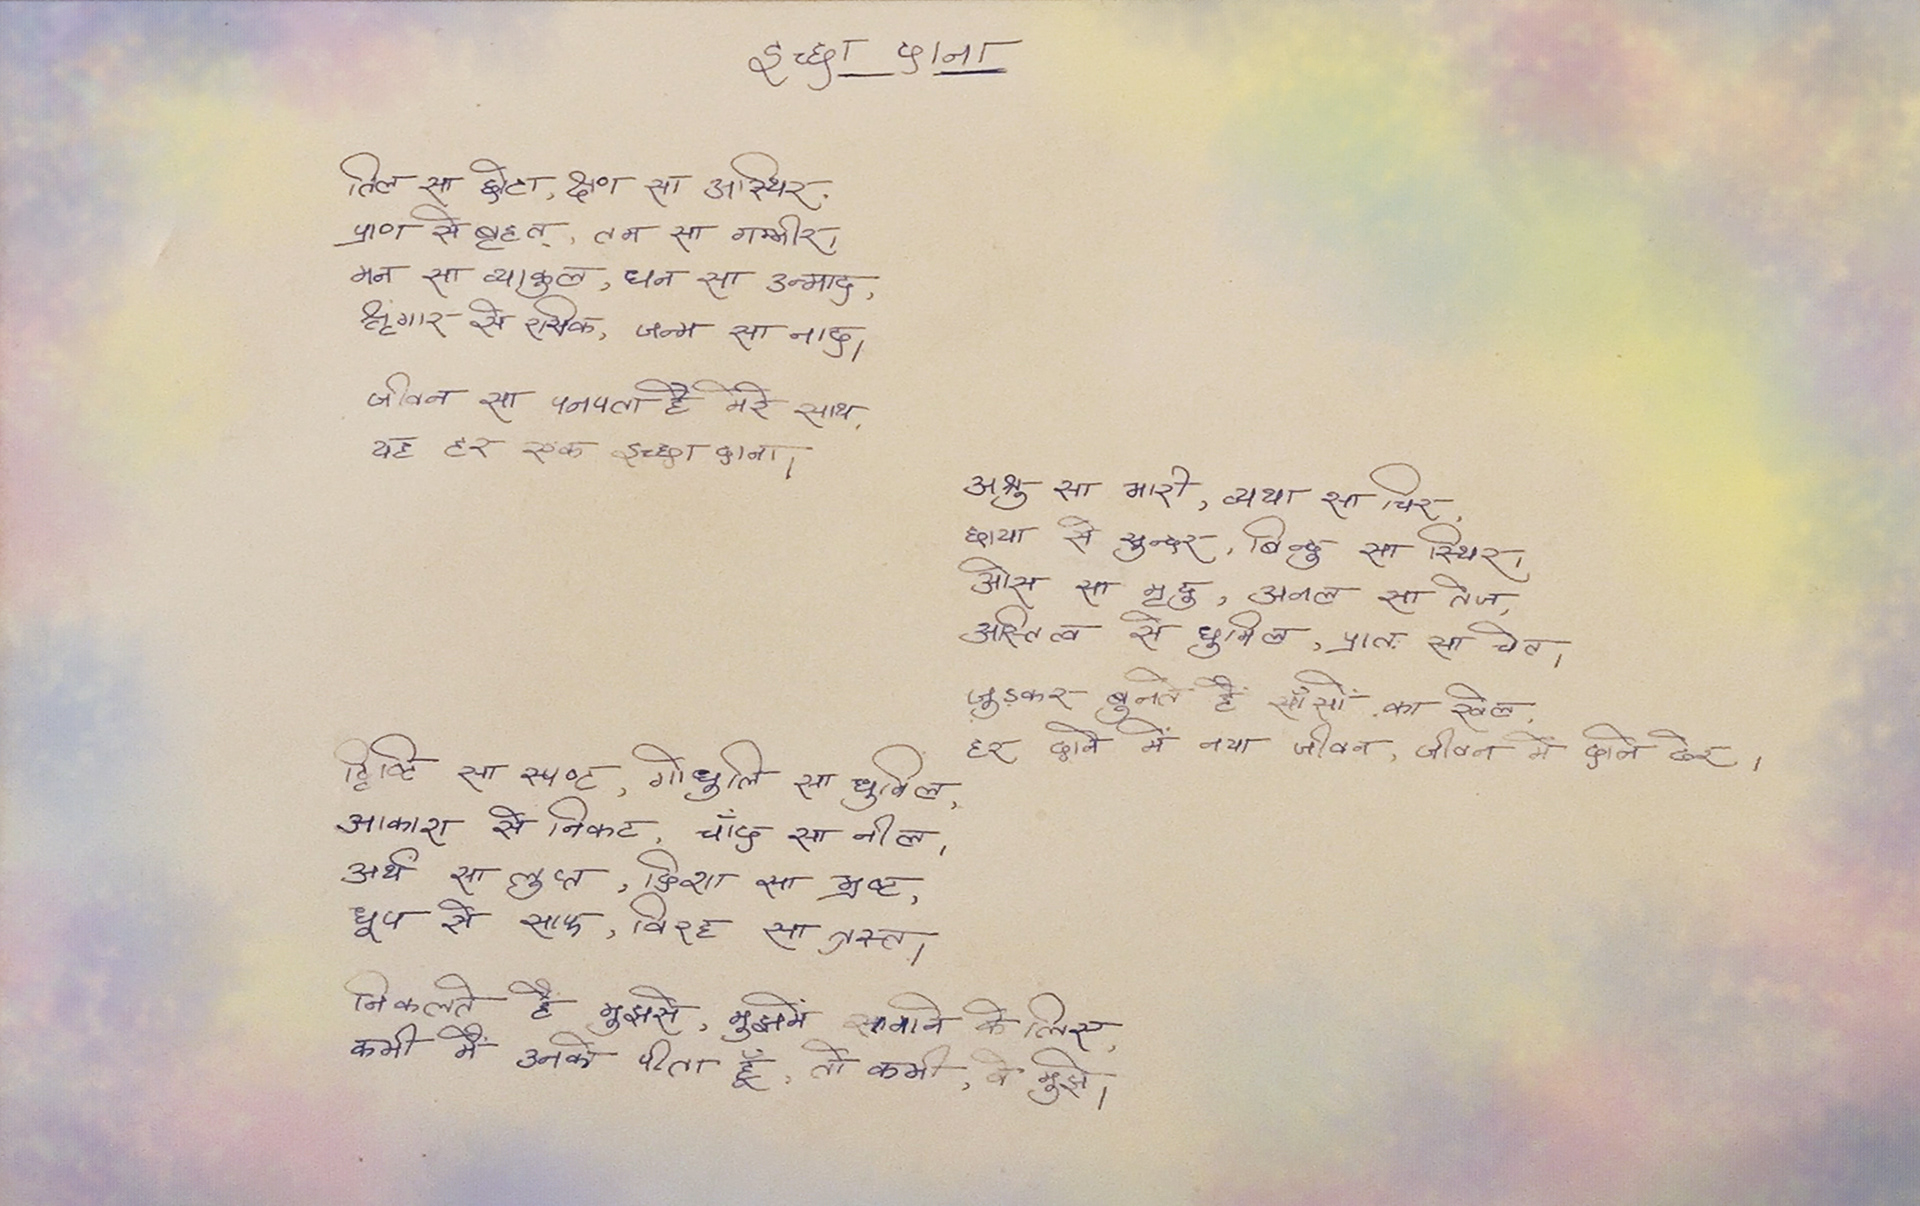 इच्छा दाना
तिल सा छोटा, क्षण सा अस्थिर,
प्राण से बृहत्, तम सा गम्भीर।
मन सा व्याकुल, धन सा उन्माद,
श्रृंगार से रसिक, जन्म सा नाद।
जीवन सा पनपता है मेरे साथ,
यह हर एक इच्छा दाना।
अश्रु सा भारी, व्यथा सा चिर,
छाया से सुन्दर, बिन्दु सा स्थिर।
ओस सा मृदु, अनल सा तेज,
अस्तित्व से धुमिल, प्रातः सा चेत।
जुड़कर बुनते हैं साँसों का खेल,
हर दाने में नया जीवन, जीवन में दाने ढेर।
दृष्टि सा स्पष्ट, गोधुलि सा धुमिल,
आकाश से निकट, चाँद सा नील।
अर्थ सा लुप्त, दिशा सा भ्रष्ट,
धूप से साफ, विरह सा त्रस्त।
निकलते हैं मुझसे, मुझमें समाने के लिए,
कभी मैं उनको पीता हूँ, तो कभी, वे मुझे।